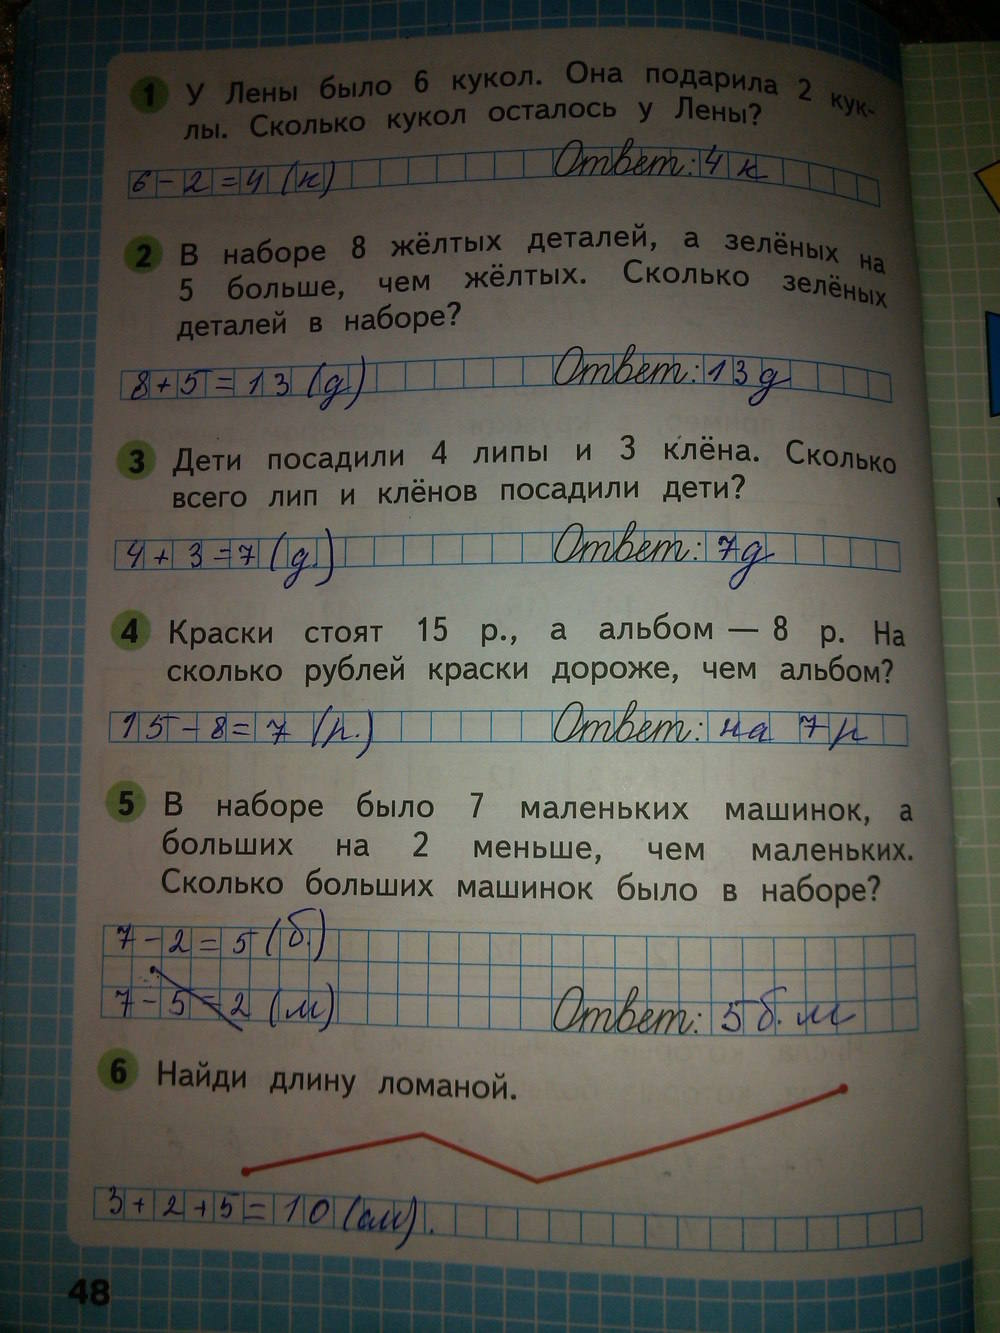 1 У Лены было 6 кукол. Она подарила 2 кук-
лы. Сколько кукол осталось у Лены?
6 - 2 = 4 (к) Ответ: 4 к
2 В наборе 8 жёлтых деталей, а зелёных на
5 больше, чем жёлтых. Сколько зелёных
деталей в наборе?
8 + 5 = 13 (д) Ответ: 13 д
3 Дети посадили 4 липы и 3 клёна. Сколько
всего лип и клёнов посадили дети?
4 + 3 = 7 (д.) Ответ: 7 д
4 Краски стоят 15 р., а альбом — 8 р. На
сколько рублей краски дороже, чем альбом?
15 - 8 = 7 (р.) Ответ: на 7 р
5 В наборе было 7 маленьких машинок, а
больших на 2 меньше, чем маленьких.
Сколько больших машинок было в наборе?
7 - 2 = 5 (б.)
7 - 5 = 2 (м) Ответ: 5 б. м
6 Найди длину ломаной.
3 + 2 + 5 = 10 (см).
48